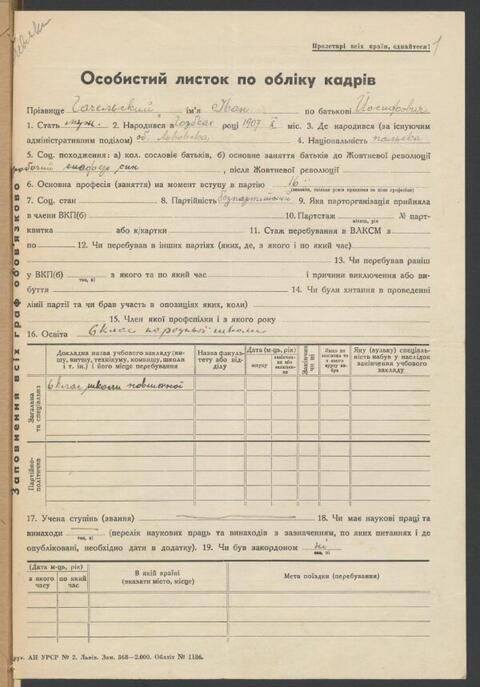 Пролетарі всіх країн, єднайтеся! 1
Особистий листок по обліку кадрів
Прізвище Гачельский ім'я Іван по батькові Йосифович
1. Стать муж. 2. Народився році 1907 X міс. 3. Де народився (за існуючим
адміністративним поділом) об. Львовска 4. Національність польска
5. Соц. походження: а) кол. сословіє батьків, б) основне заняття батьків до Жовтневої революції
робочий син, після Жовтневої революції
6. Основна професія (заняття) на момент вступу в партію
7. Соц. стан 8. Партійність безпартійний 9. Яка парторганізація прийняла
в члени ВКП(б) 10. Партстаж місяць, рік № парт-
квитка або к/картки 11. Стаж перебування в ВЛКСМ з
по 12. Чи перебував в інших партіях (яких, де, з якого і по який час)
13. Чи перебував раніш
у ВКП(б) так, ні з якого та по який час і причини виключення або ви-
буття 14. Чи були хитання в проведенні
лінії партії та чи брав участь в опозиціях яких, коли)
15. Член якої профспілки і з якого року
16. Освіта 6 клас народньої школи
Докладна назва учбового закладу (ви-
шу, витшу, технікуму, комвишу, школи
і т. ін.) і його місце перебування)
Назва факуль-
тету або від-
ділу
Дата (м-ць, рік)
вступу
закінчен-
ня або
Закінчив
чи ні
Яку (вузьку) спеціаль-
ність набув у наслідок
закінчення учбового
закладу
Загальна
та спеціальна
6 клас школи повшехної
Партійно-
політична
17. Учена ступінь (звання) 18. Чи має наукові праці та
винаходи так, ні (перелік наукових праць та винаходів з зазначенням, по яких питаннях і де
опубліковані, необхідно дати в додатку). 19. Чи був закордоном ні
так, ні
(Дата м-ць, рік)
з якого
часу
по який
час
В якій країні
(вказати місто, місце)
Мета поїздки (перебування)
рук. АН УРСР № 2. Львів. Зам. 368—2.000. Обліт № 1186.
Заповнення всіх граф обов'язково